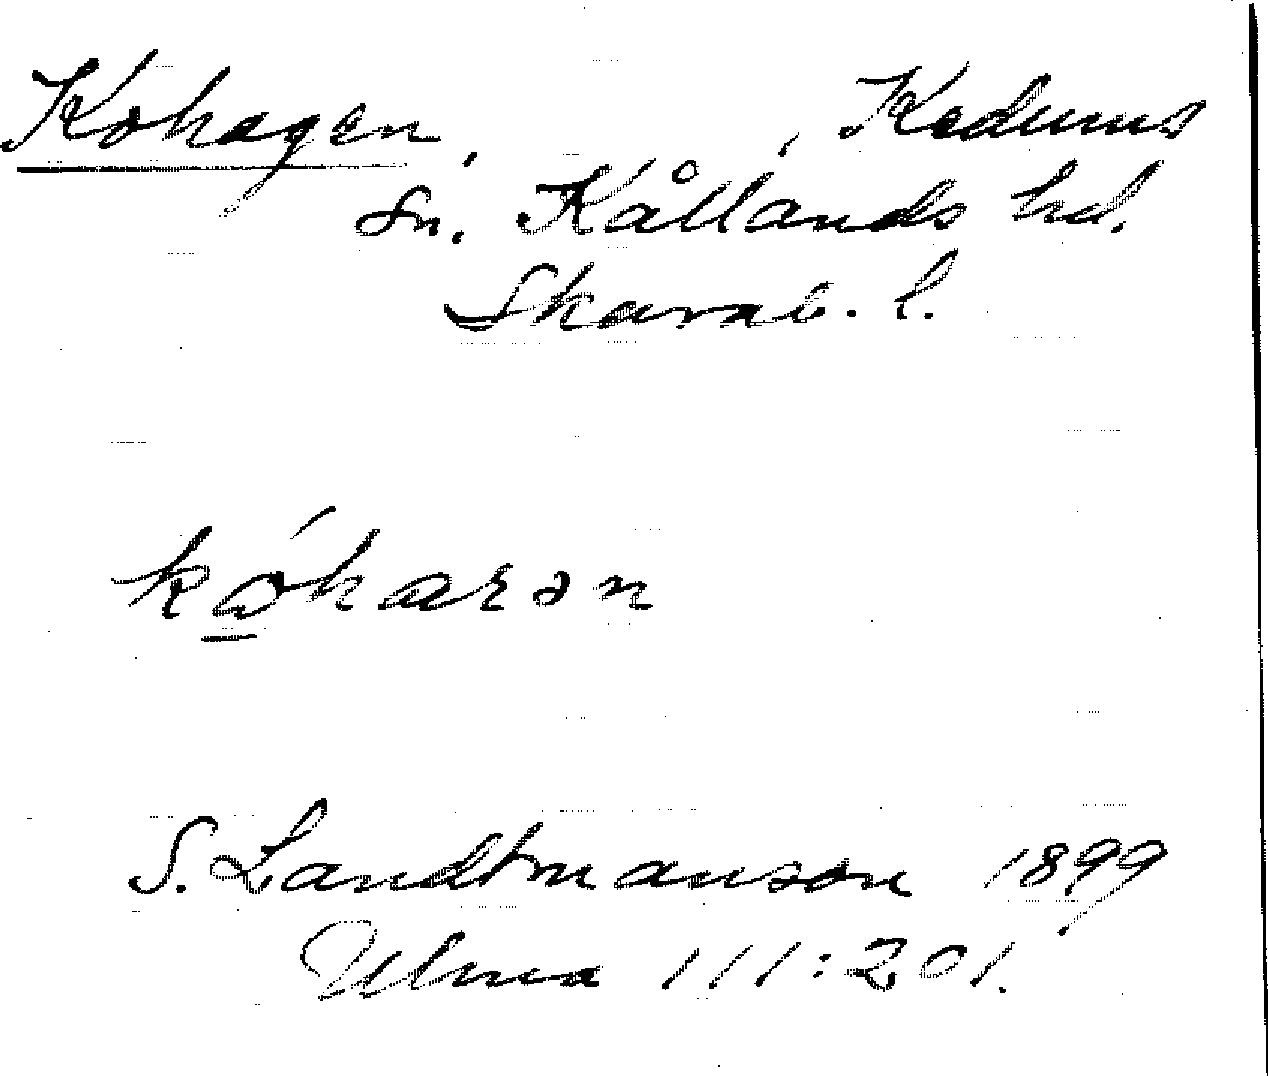 Kohagen, , Kedums
sn. Kållands hd.
Skarab. l.
kóharən
S. Landtmanson 1899
Ulma 111:201.